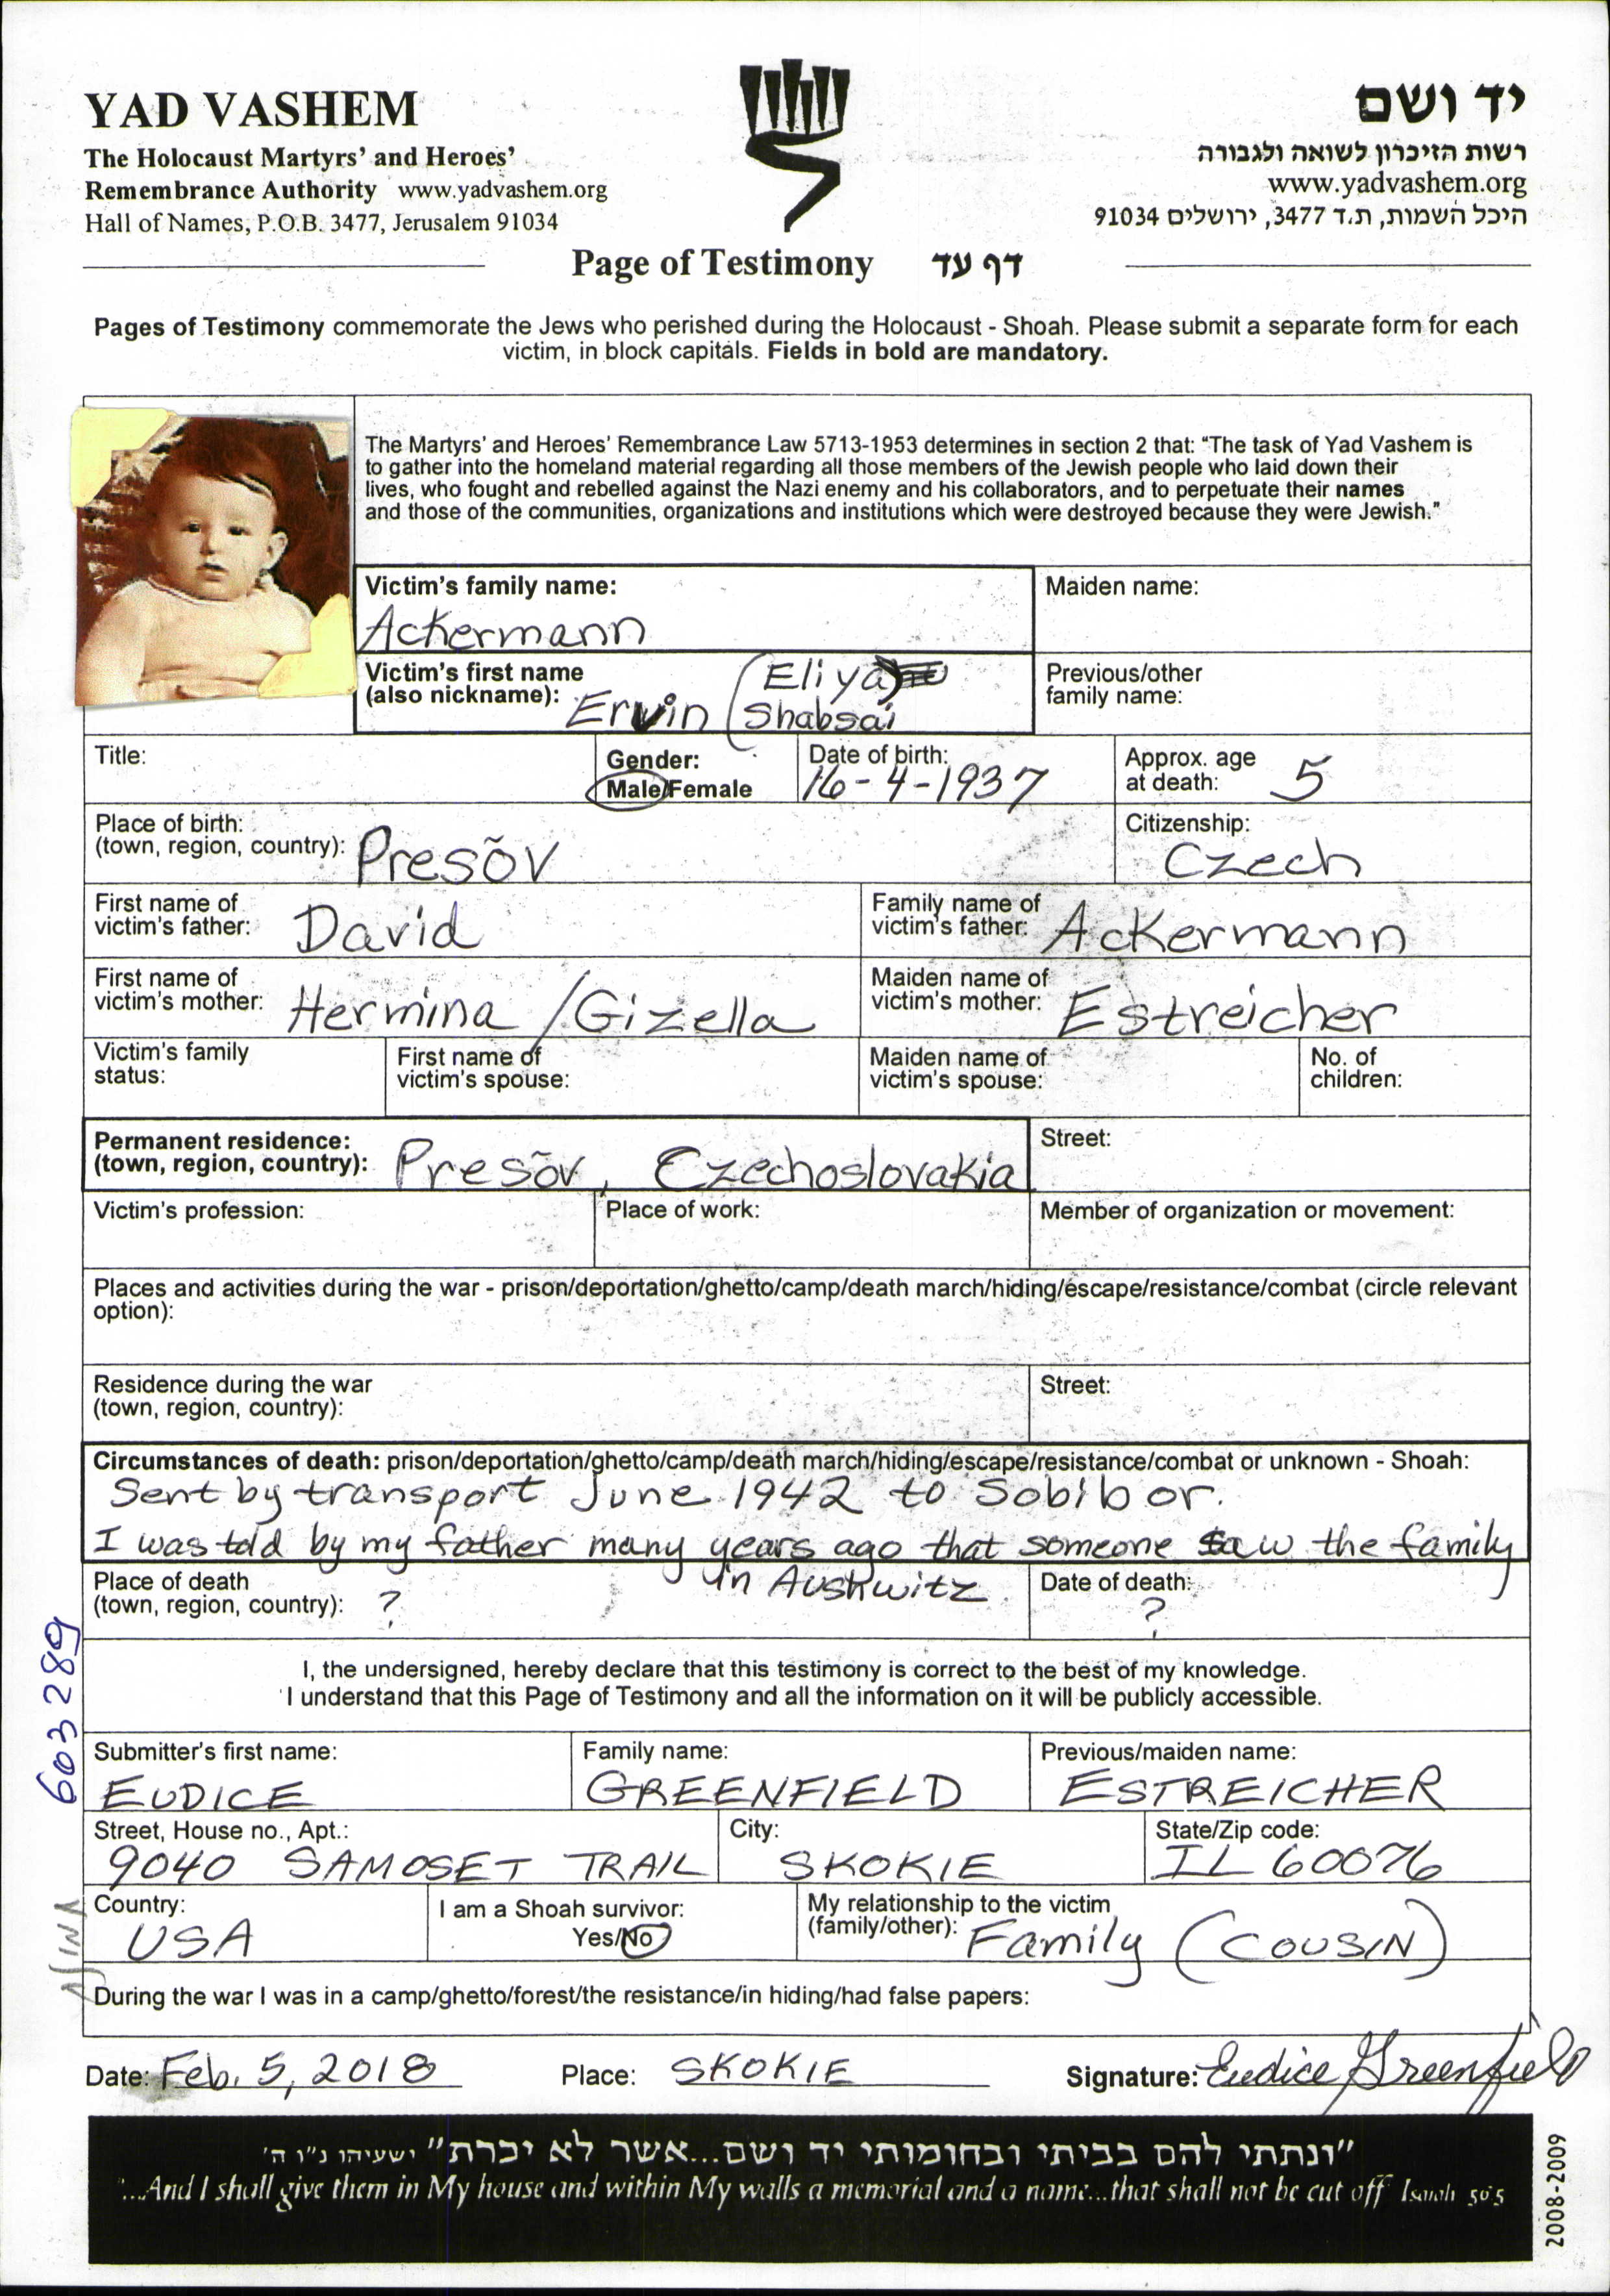 YAD VASHEM
The Holocaust Martyrs' and Heroes'
Remembrance Authority www.yadvashem.org
Hall of Names, P.O.B. 3477, Jerusalem 91034
יד ושם
רשות הזיכרון לשואה ולגבורה
www.yadvashem.org
היכל השמות, ת.ד 3477, ירושלים 91034
Page of Testimony דף עד
Pages of Testimony commemorate the Jews who perished during the Holocaust - Shoah. Please submit a separate form for each
victim, in block capitals. Fields in bold are mandatory.
The Martyrs' and Heroes' Remembrance Law 5713-1953 determines in section 2 that: "The task of Yad Vashem is
to gather into the homeland material regarding all those members of the Jewish people who laid down their
lives, who fought and rebelled against the Nazi enemy and his collaborators, and to perpetuate their names
and those of the communities, organizations and institutions which were destroyed because they were Jewish."
Victim's family name:
Ackermann
Maiden name:
Victim's first name
(also nickname):
Ervin (Eliya
Shabsai
Previous/other
family name:
Title:
Gender:
Male/Female
Date of birth:
16-4-1937
Approx. age
at death: 5
Place of birth:
(town, region, country): Presõv
Citizenship:
Czech
First name of
victim's father: David
Family name of
victim's father: Ackermann
First name of
victim's mother: Hermina / Gizella
Maiden name of
victim's mother: Estreicher
Victim's family
status:
First name of
victim's spouse:
Maiden name of
victim's spouse:
No. of
children:
Permanent residence:
(town, region, country): Presõv, Czechoslovakia
Street:
Victim's profession:
Place of work:
Member of organization or movement:
Places and activities during the war - prison/deportation/ghetto/camp/death march/hiding/escape/resistance/combat (circle relevant
option):
Residence during the war
(town, region, country):
Street:
Circumstances of death: prison/deportation/ghetto/camp/death march/hiding/escape/resistance/combat or unknown - Shoah:
Sent by transport June 1942 to Sobibor.
I was told by my father many years ago that someone saw the family
in Auskwitz
Place of death
(town, region, country): ?
Date of death:
?
I, the undersigned, hereby declare that this testimony is correct to the best of my knowledge.
I understand that this Page of Testimony and all the information on it will be publicly accessible.
Submitter's first name:
EUDICE
Family name:
GREENFIELD
Previous/maiden name:
ESTREICHER
Street, House no., Apt.:
9040 SAMOSET TRAIL
City:
SKOKIE
State/Zip code:
IL 60076
Country:
USA
I am a Shoah survivor:
Yes/No
My relationship to the victim
(family/other): Family (COUSIN)
During the war I was in a camp/ghetto/forest/the resistance/in hiding/had false papers:
Date: Feb. 5, 2018
Place: SKOKIE
Signature: Eudice Greenfield
"ונתתי להם בביתי ובחומותי יד ושם...אשר לא יכרת" ישעיהו נ"ו ה'
"...And I shall give them in My house and within My walls a memorial and a name...that shall not be cut off" Isaiah 56 5
2008-2009
603289